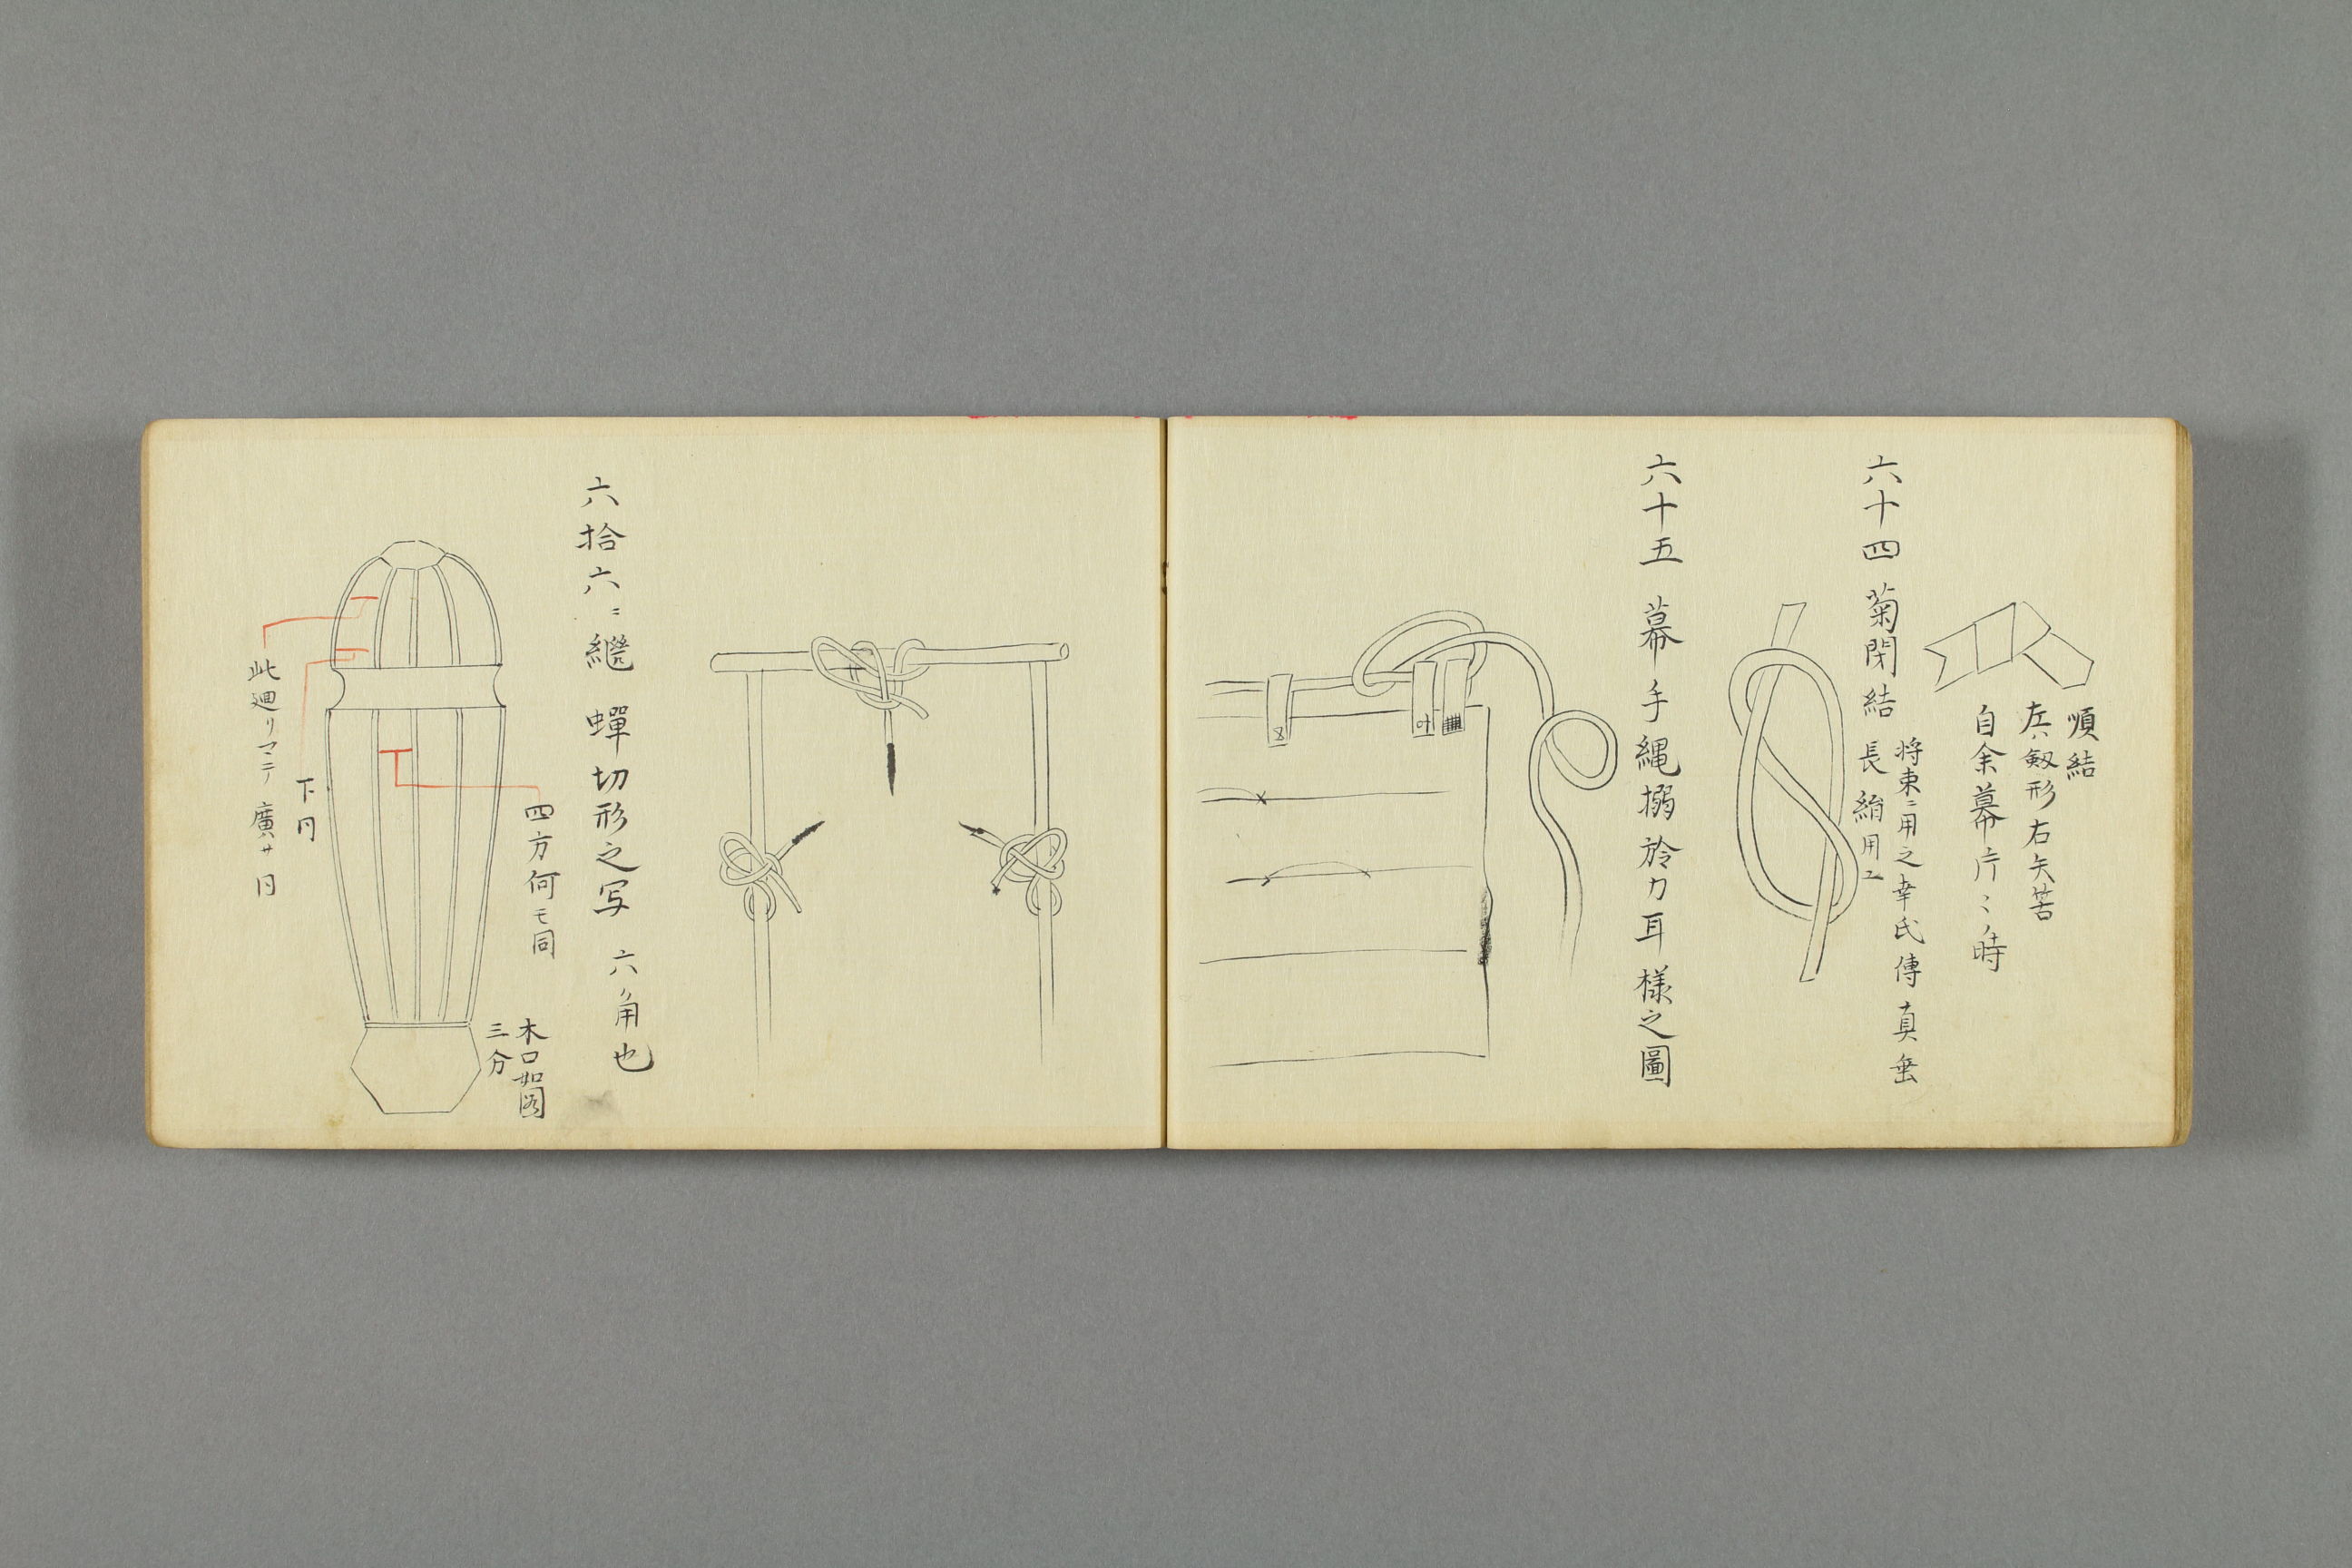 順結
左ハ釼形右矢筈
自余幕片〻ノ時
六十四 菊閉結
将束ニ用之幸氏傳真垂
長絹用
六十五 幕手縄搦於力耳様之圖
六拾六ニ繼 蟬切形之写 六角也
四方何モ同
木口如図
三分
下円
此廻リマテ廣サ円